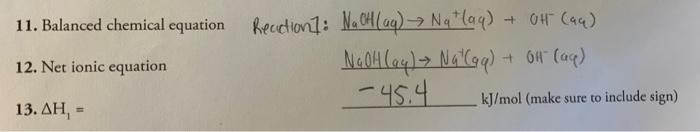 11. Balanced chemical equation Reaction 1: NaOH(aq) → Na⁺(aq) + OH⁻(aq)
12. Net ionic equation NaOH(aq) → Na⁺(aq) + OH⁻(aq)
13. ΔH₁ = -45.4 kJ/mol (make sure to include sign)